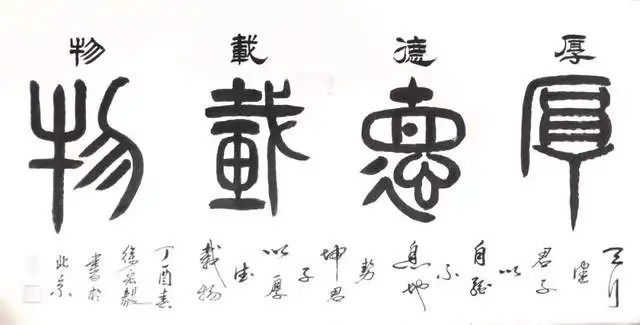 厚德載物
厚悳載物
天行
健
君子
以
自强
不
息地
势
坤君
子
以厚
德
載物
丁酉春
徐宏毅
書於
北京